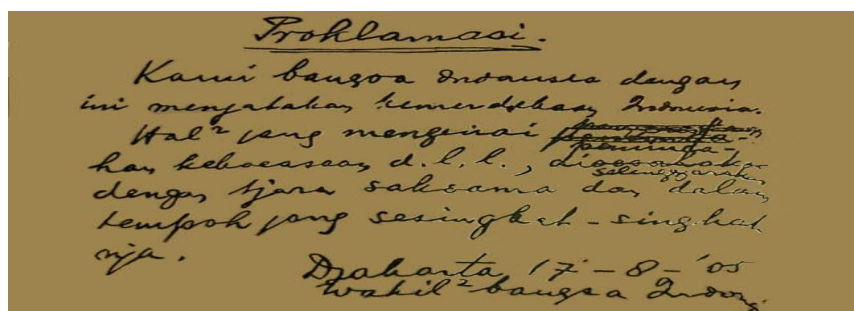 Proklamasi.
Kami bangsa Indonesia dengan
ini menjatakan kemerdekaan Indonesia.
Hal² jang mengenai
han kekoeasaan d.l.l., dioesahakan
selenggarakan
dengan tjara saksama dan dalam
tempoh jang sesingkat-singkat
nja.
Djakarta 17-8-'05
Wakil² bangsa Indones